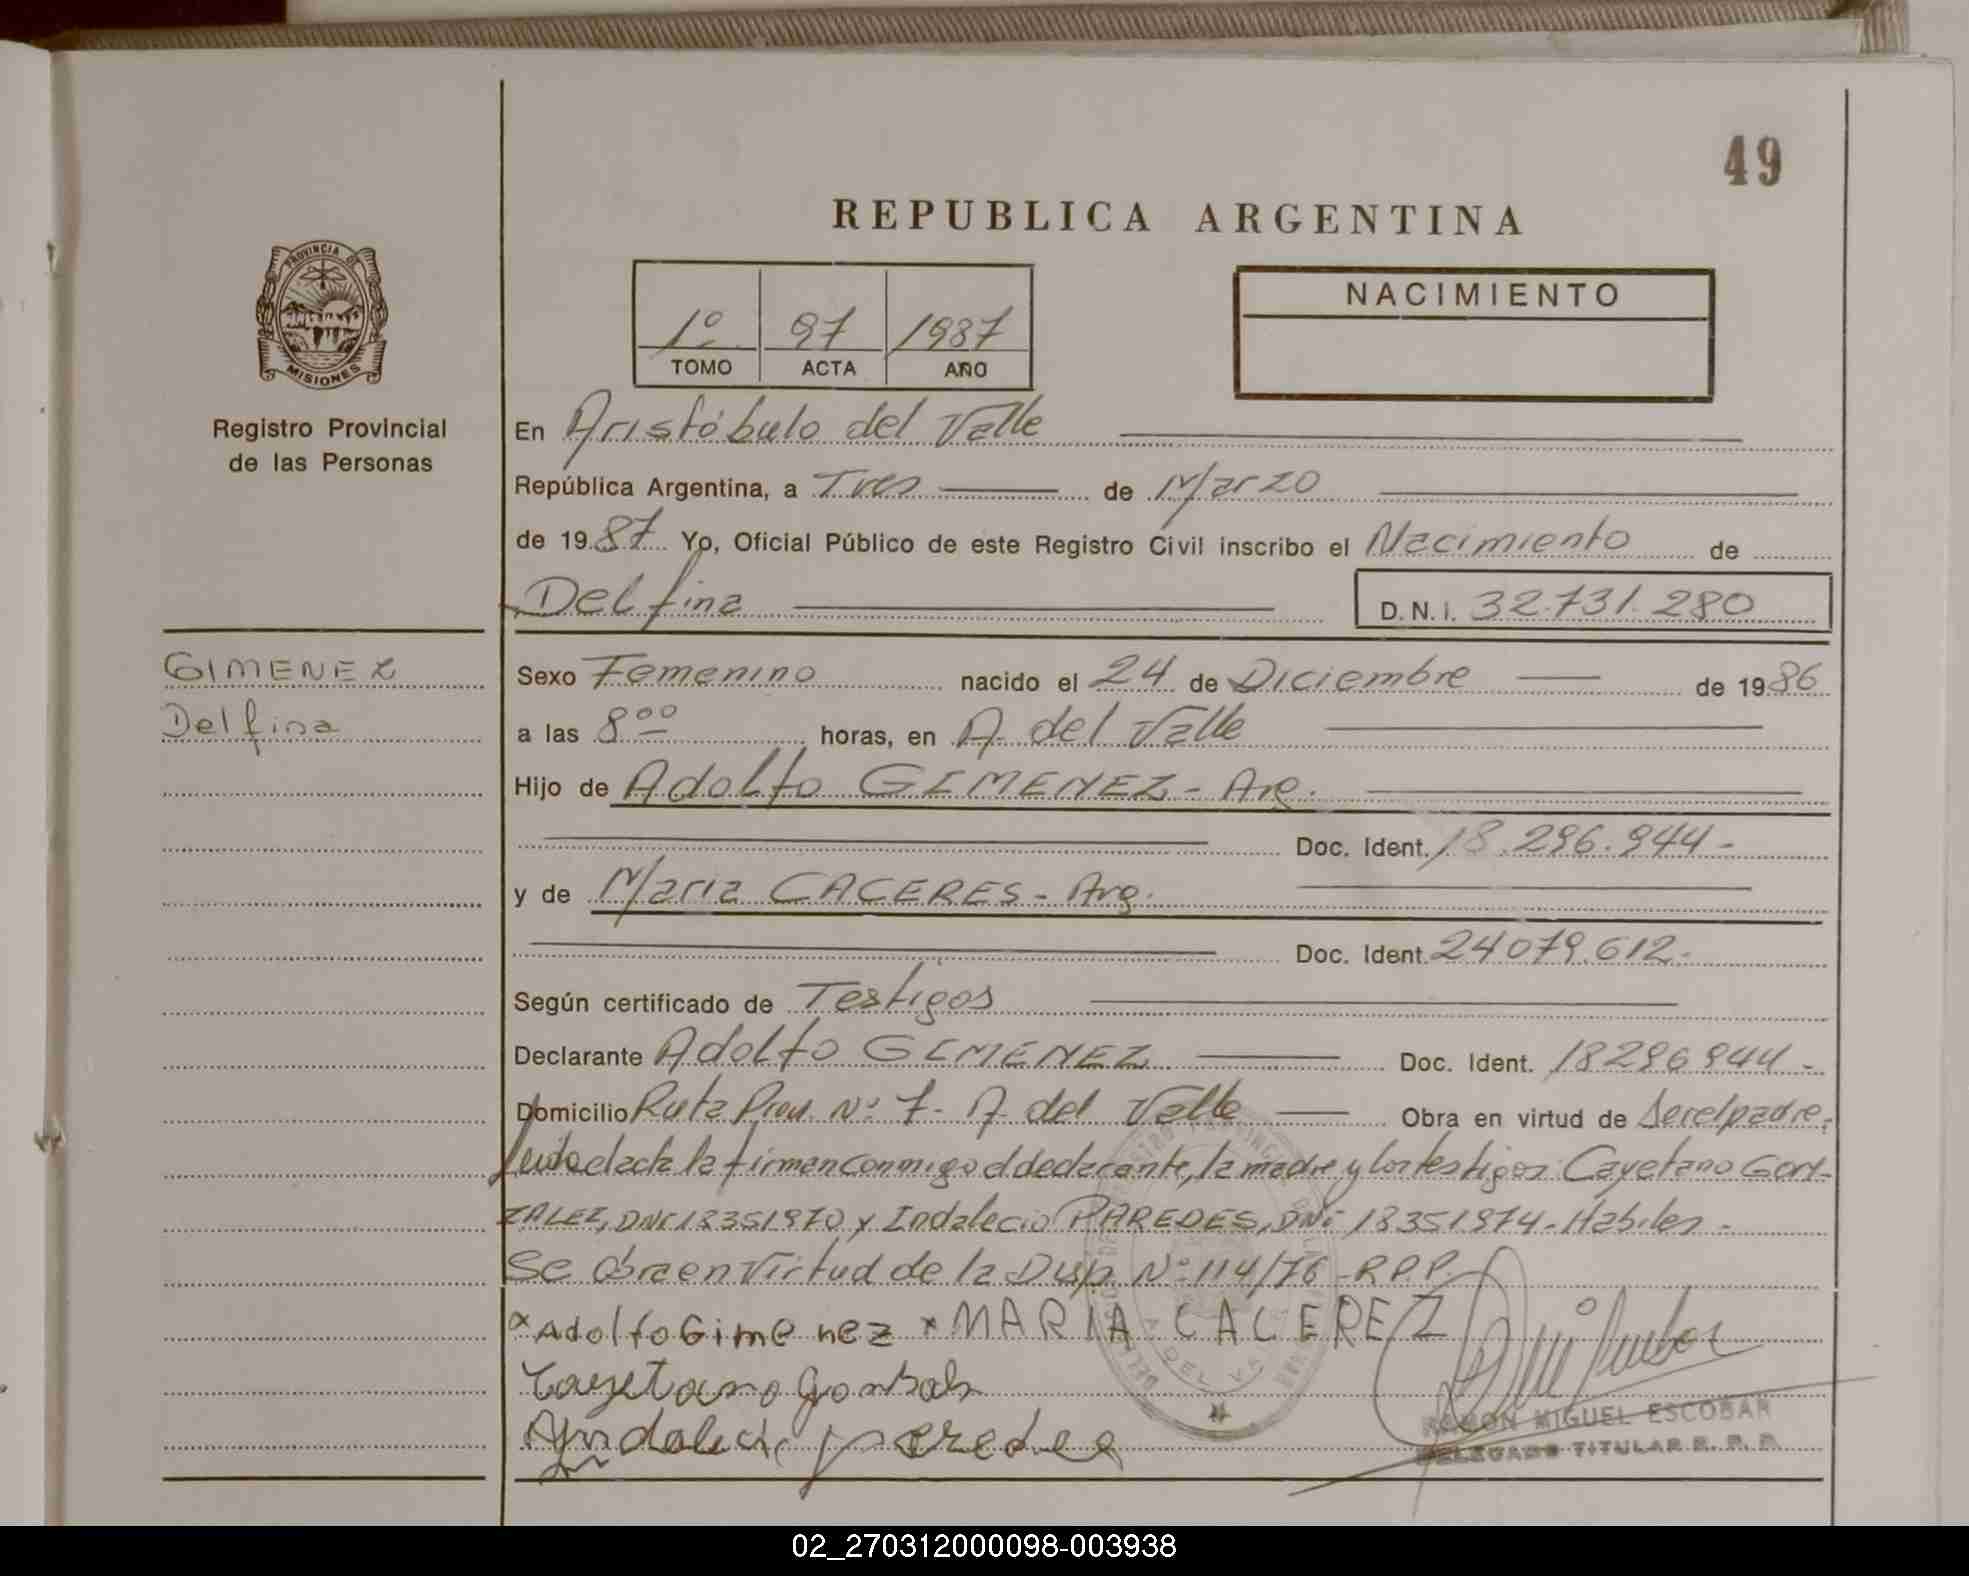 49
REPUBLICA ARGENTINA
PROVINCIA DE
MISIONES
Registro Provincial
de las Personas
1º 97 1987
TOMO ACTA AÑO
NACIMIENTO
En Aristóbulo del Valle
República Argentina, a Tres de Marzo
de 1987 Yo, Oficial Público de este Registro Civil inscribo el Nacimiento de
Delfina D.N.I. 32.731.280
GIMENEZ
Delfina
Sexo Femenino nacido el 24 de Diciembre de 1986
a las 8⁰⁰ horas, en A. del Valle
Hijo de Adolfo GIMENEZ - Arg.
Doc. Ident. 18.296.944-
y de Maria CACERES - Arg.
Doc. Ident. 24079.612-
Según certificado de Testigos
Declarante Adolfo GIMENEZ Doc. Ident. 18296944-
Domicilio Ruta Prov. Nº 7- A. del Valle Obra en virtud de Ser el padre.
Leida el acta la firman conmigo el declarante, la madre y los testigos: Cayetano GON-
ZALEZ, DNI 18351970 y Indalecio PAREDES, DNI 18351974 - Habiles -
Se obra en virtud de la Disp. Nº 114/76 - R.P.P.
x Adolfo Gimenez x MARIA CACEREZ
Cayetano
Yndalecio paredes
RAMON MIGUEL ESCOBAR
DELEGADO TITULAR R. P. P.
02_270312000098-003938